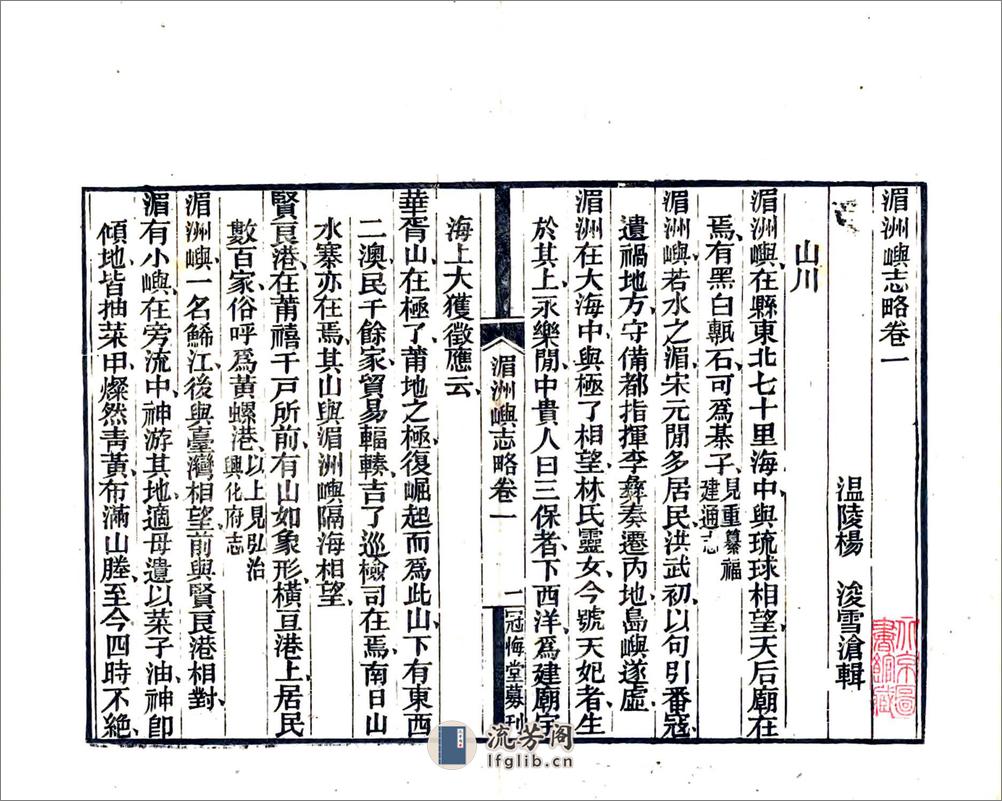 湄洲嶼志略卷一
温陵楊　浚雪滄輯
山川
湄洲嶼、在縣東北七十里海中與琉球相望天后廟在
焉、有黑白甎石可爲棊子、見重纂福建通志
湄洲嶼、若水之湄、宋元閒多居民、洪武初以句引番寇、
遺禍地方、守備都指揮李彝奏遷內地島嶼遂虛、
湄洲在大海中、與極了相望、林氏靈女今號天妃者、生
於其上、永樂閒中貴人曰三保者下西洋、爲建廟宇、
海上大獲徵應云、
華胥山在極了、莆地之極復崛起而爲此山下有東西
二澳民千餘家、貿易輻輳、吉了巡檢司在焉、南日山
水寨亦在焉、其山與湄洲嶼隔海相望、
賢良港、在莆禧千戶所前、有山如象形、橫亘港上、居民
數百家、俗呼爲黃螺港、以上見弘治興化府志
湄洲嶼、一名鯑江、後與臺灣相望、前與賢良港相對、
湄有小嶼、在旁流中、神游其地、適母遺以菜子油、神卽
傾地、皆抽菜甲、燦然靑黃、布滿山塍、至今四時不絕、
湄洲嶼志略卷一
一
冠悔堂募刊
流芳阁
lfglib.cn